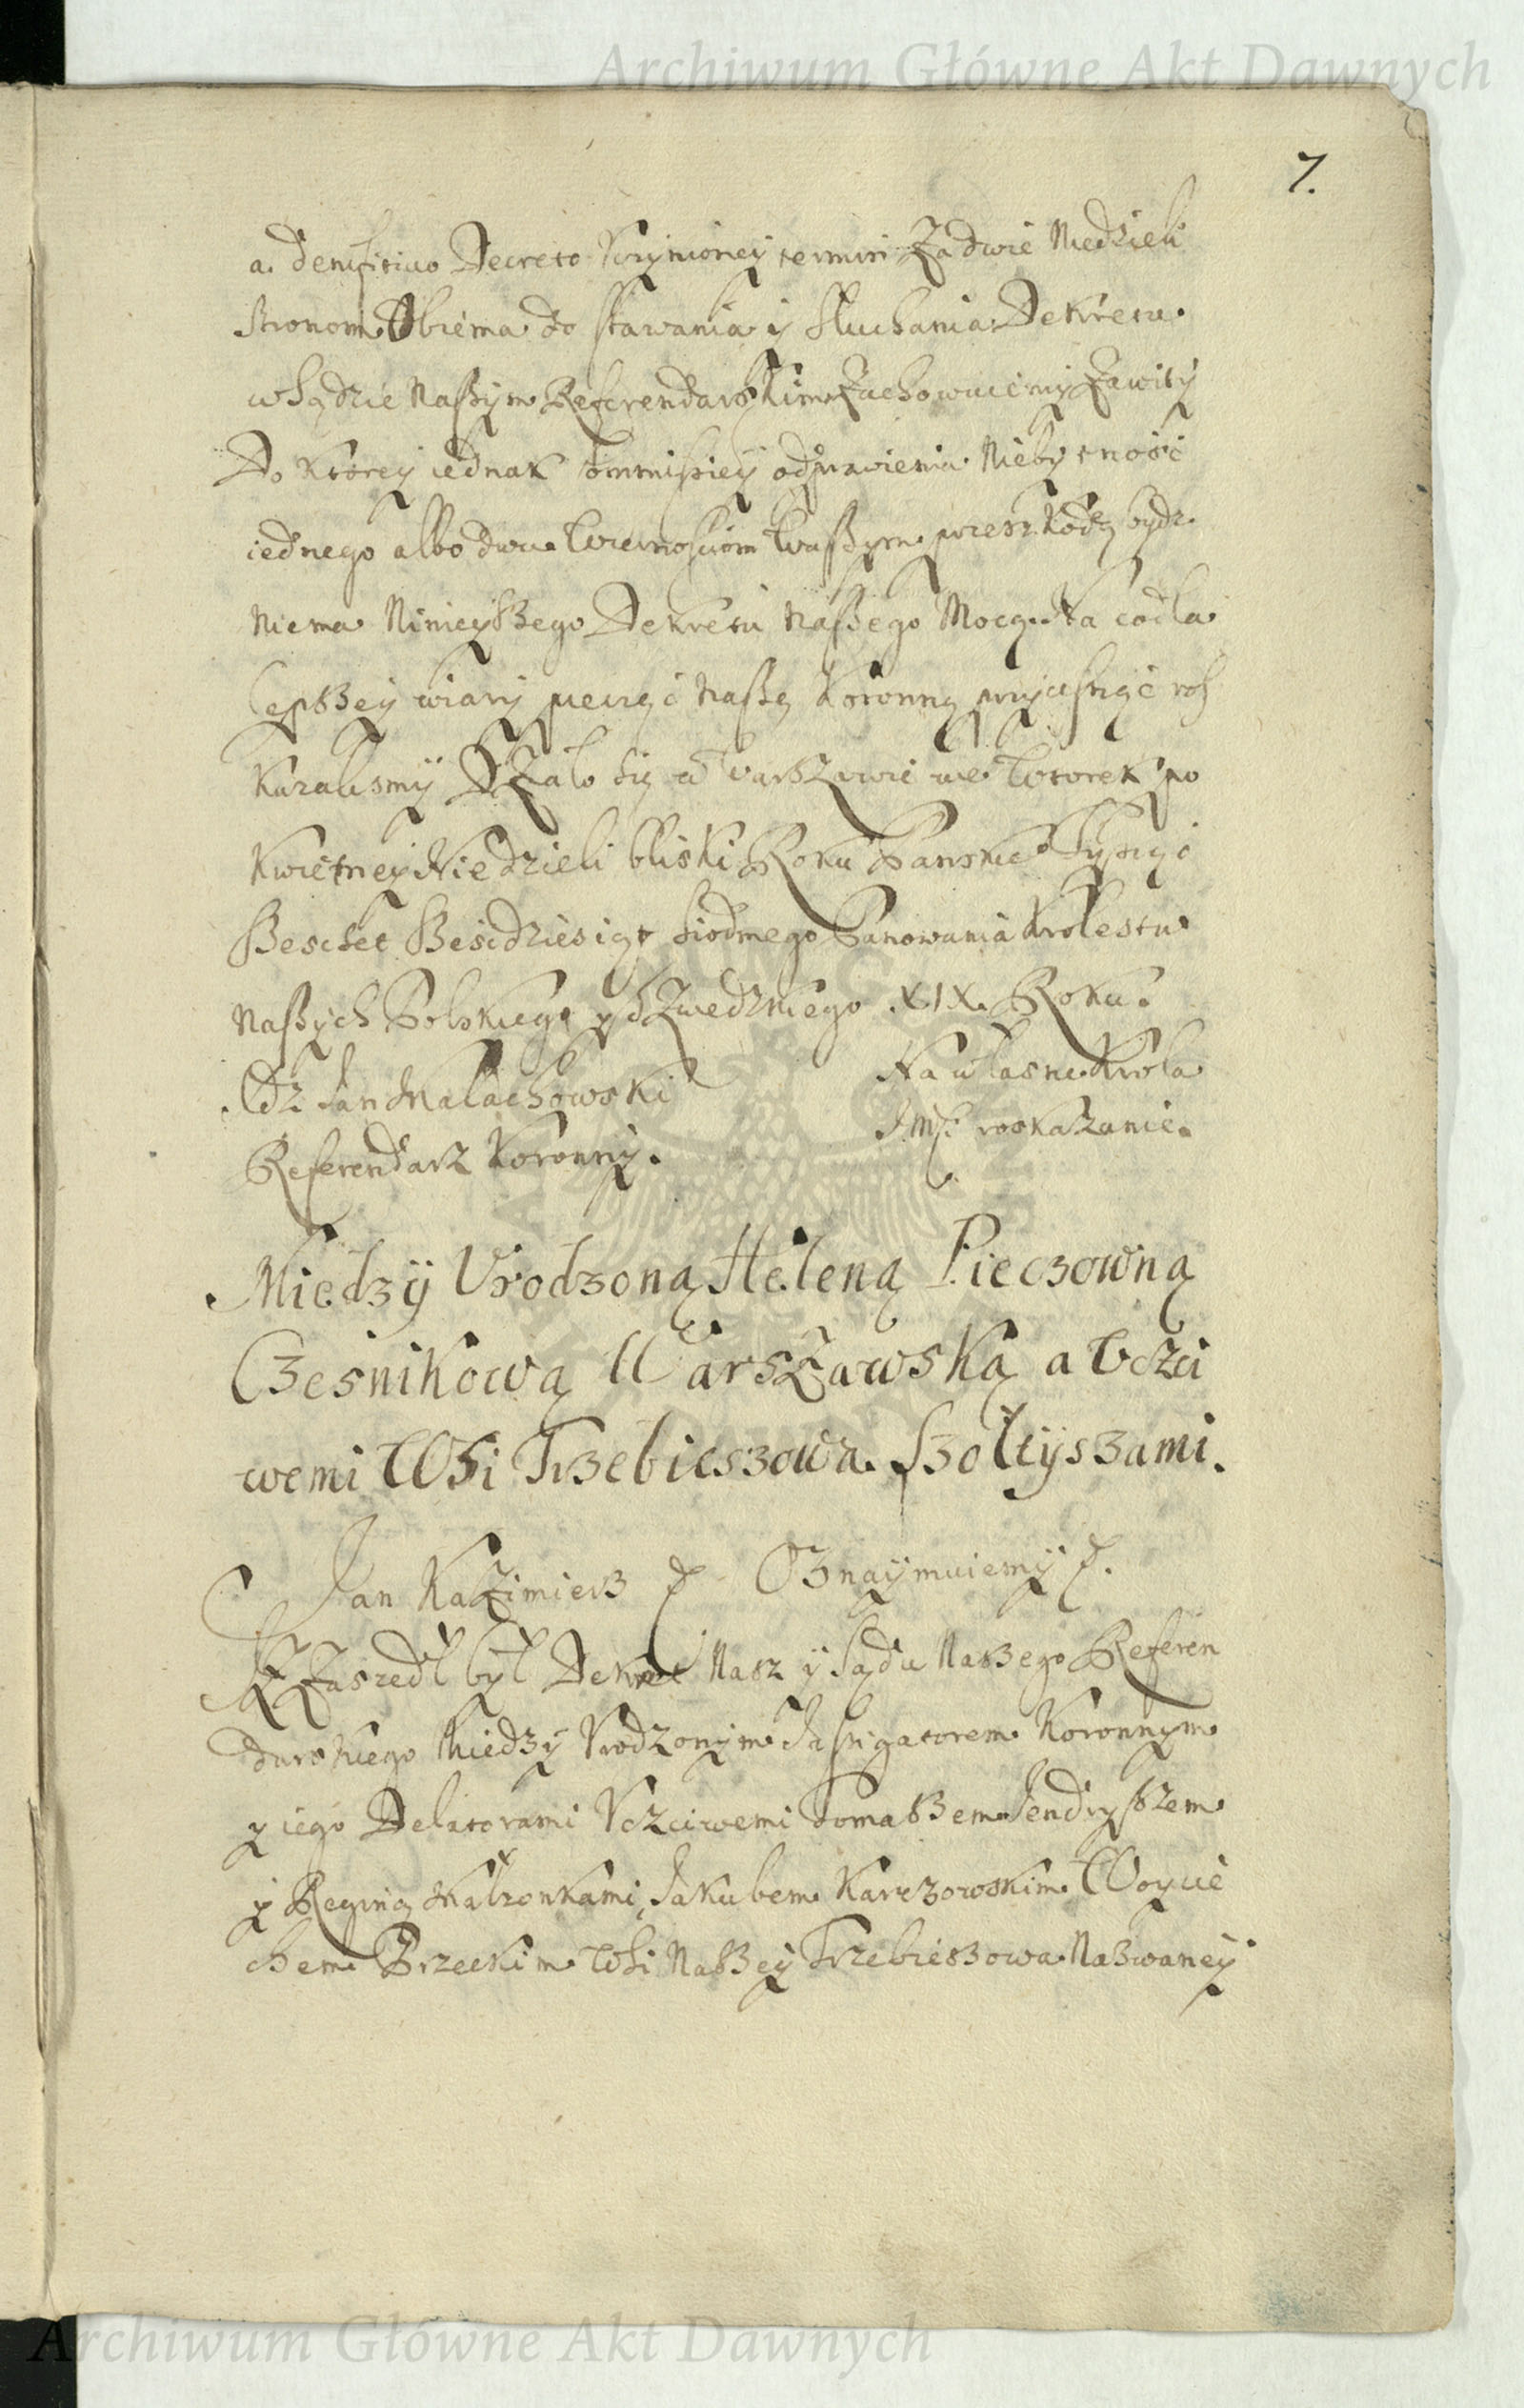 Archiwum Główne Akt Dawnych
7.
a. denifitiuo Decreto Vczynioney termin Za dwie Niedzieli
Stronom Obiema do stawania y słuchania Dekretu
w Sądzie Naszym Referendarskim Zachowuiemy Zawity
Do ktorey iednak Commissiey odprawienia Niebytność
iednego albo dwu Wiernościom Waszym przeszkodą bydz
Niema Ninieyszego Dekretu Naszego Mocą. Na co dla
lepszey wiary pieczęć Naszą Koronną przycisnąć ros
kazalismy Działo się w Warszawie we Wtorek po
Kwietney Niedzieli bliski Roku Panskiego Tysiąc
Szescset Szescdziesiąt siodmego Panowania Krolestw
Naszych Polskiego y Szwedzkiego XIX. Roku.
Xdz Jan Małachowski
Referendarz Koronny.
Na własne Krola
J.Msci roskazanie.
Miedzy Vrodzoną Heleną Pieczowną
Czesnikową Warszawską a Vczci
wemi Wsi Trzebieszowa Szołtyszami.
Jan Kazimierz Oznaymuiemy
Iz Zaszedł był Dekret Nasz y Sądu Naszego Referen
darskiego Miedzy Vrodzonym Instigatorem Koronnym
y iego Delatorami Vczciwemi Tomaszem Jendryszem
y Reginą Małzonkami, Jakubem Karczowskim Woycie
chem Brzeckim Wsi Naszey Trzebieszowa Nazwaney
Archiwum Główne Akt Dawnych